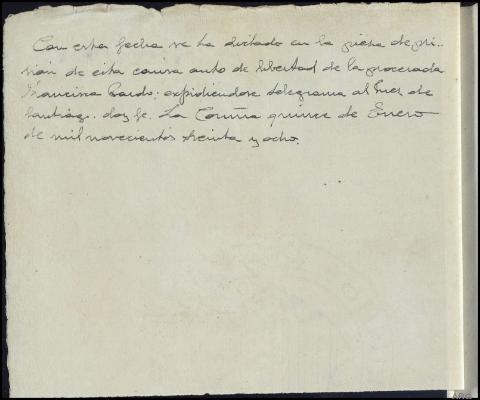 Con esta fecha se ha dictado en la pieza de pri-
sión de esta causa auto de libertad de la procesada
Francisca Pardo; expidiendose telegrama al Juez de
Santiago. doy fe. La Coruña quince de Enero
de mil novecientos treinta y ocho.